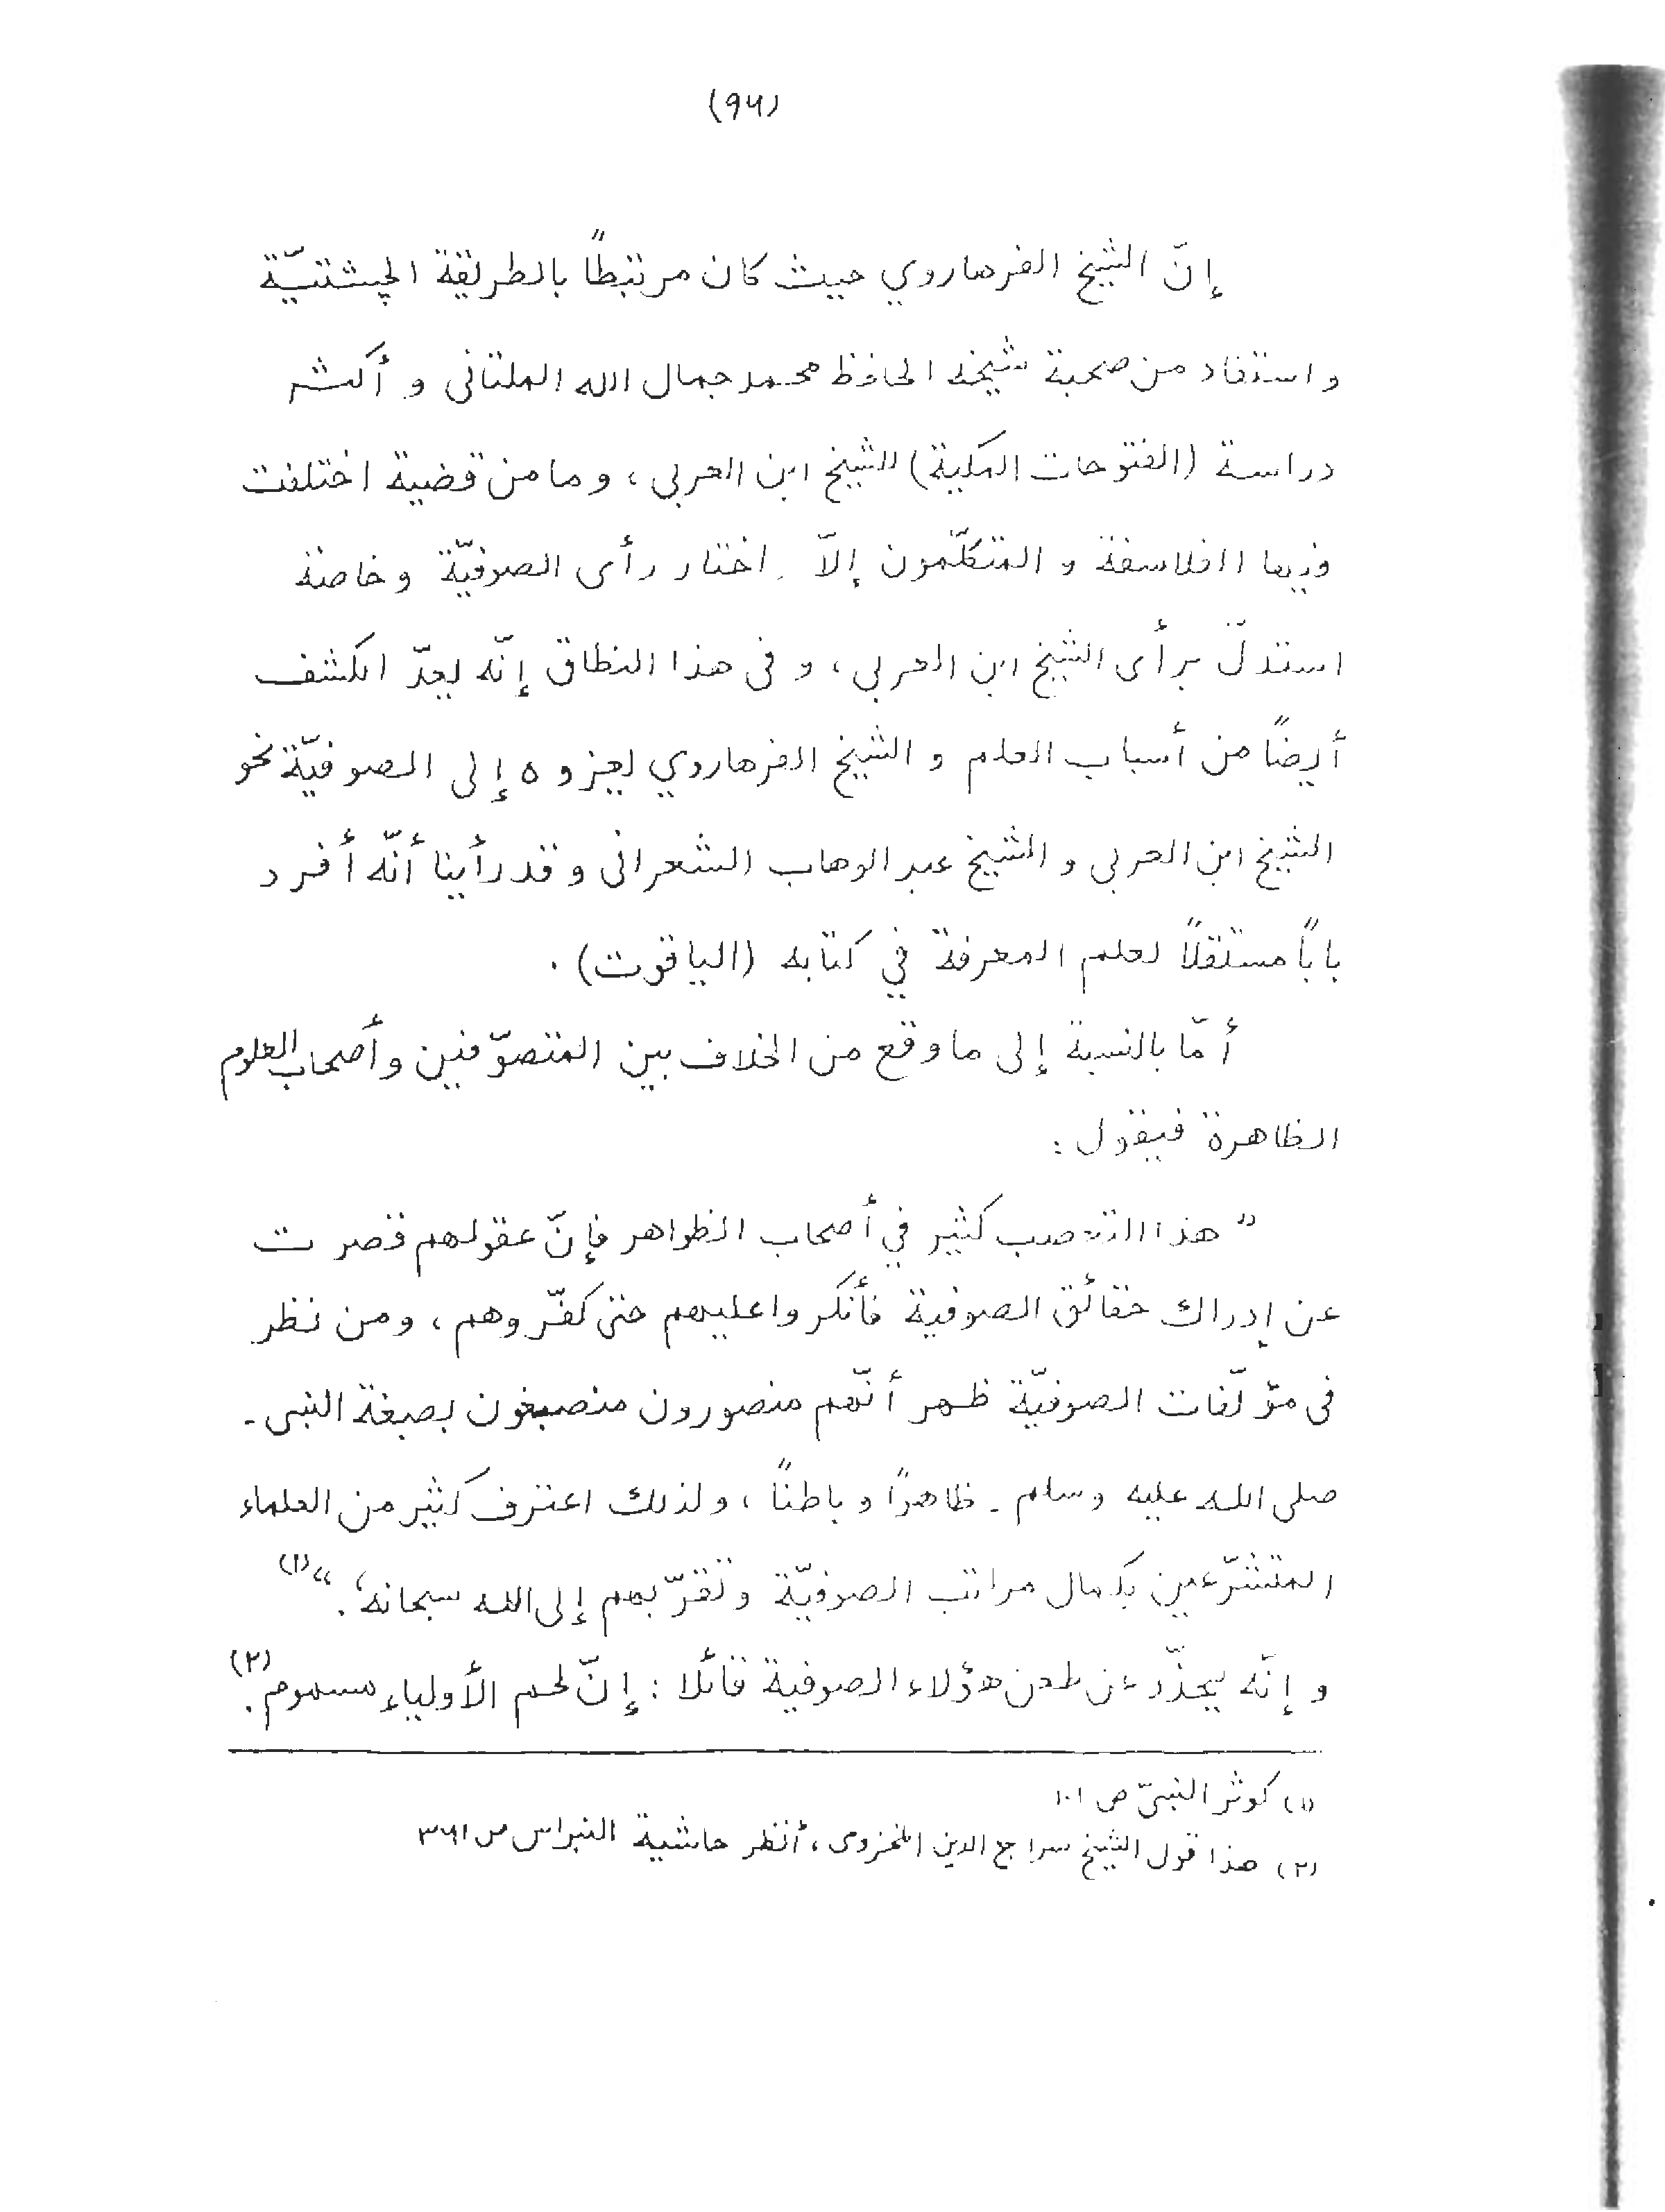 (۹۶)
إنّ الشيخ الفرهاروي حيث كان مرتبطاً بالطريقة الچشتتيّة
و استفاد من صحبة شيخه الحافظ محمد جمال الله الملتانى و أكثر
دراسة (الفتوحات المكية) للشيخ ابن العربى ، و ما من قضية اختلفت
فيها الفلاسفة و المتكلّمون إلاّ اختار رأى الصوفيّة و خاصة
استدلّ برأى الشيخ ابن العربى ، و فى هذا النطاق إنّه يعدّ الكشف
أيضاً من أسباب العلم و الشيخ الفرهاروي يعزوه إلى الصوفيّة نحو
الشيخ ابن العربى و الشيخ عبد الوهاب الشعرانى و قد رأينا أنّه أفرد
باباً مستقلاً لعلم المعرفة في كتابه (الياقوت) .
أمّا بالنسبة إلى ما وقع من الخلاف بين المتصوّفين و أصحاب العلوم
الظاهرة فيقول :
” هذا التعصب كثير في أصحاب الظواهر فإنّ عقولهم قصرت
عن إدراك حقائق الصوفية فأنكروا عليهم حتى كفّروهم ، ومن نظر
فى مؤلّفات الصوفيّة ظهر أنّهم منصورون منصبغون بصبغة النبى -
صلى الله عليه وسلم - ظاهراً و باطناً ، ولذلك اعترف كثير من العلماء
المتشرّعين بكمال مراتب الصوفيّة و تقرّبهم إلى الله سبحانه . “ (۱)
و إنّه يحذّر عن طعن هؤلاء الصوفية قائلا : إنّ لحم الأولياء مسموم . (۲)
(۱) كوثر النبىّ ص ۱۰۱
(۲) هذا قول الشيخ سراج الدين المخزومى ، أنظر حاشية النبراس ص ۳۶۱